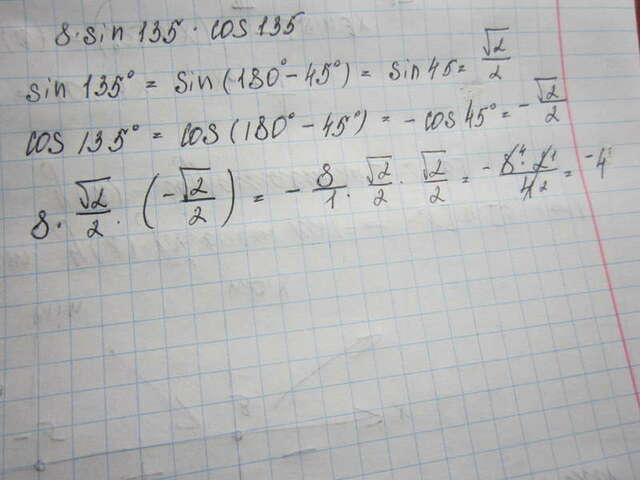 8 · sin 135 · cos 135
sin 135° = sin (180° - 45°) = sin 45 = √2/2
cos 135° = cos (180° - 45°) = - cos 45° = - √2/2
8 · √2/2 · (- √2/2) = - 8/1 · √2/2 · √2/2 = - 8⁴ · 2¹/4₂ = -4